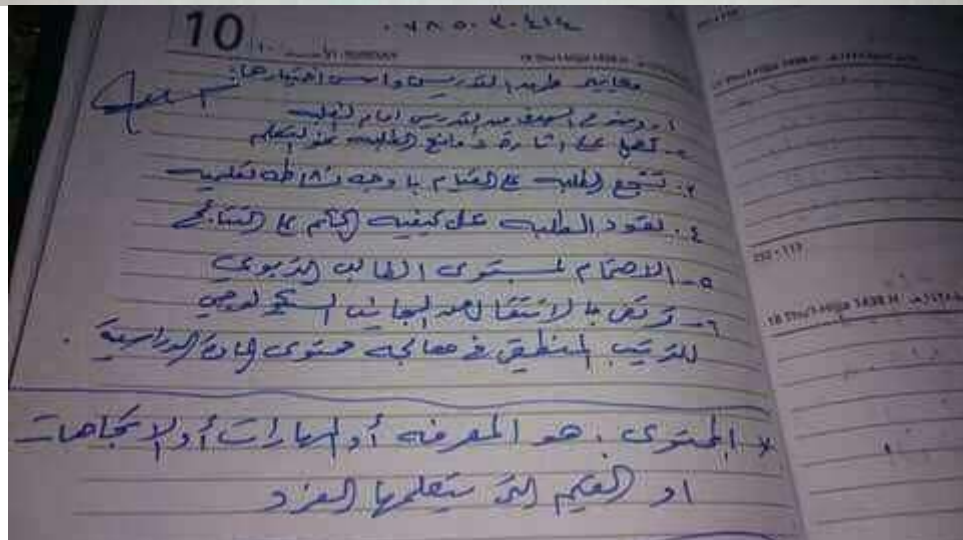 10
معايير طرق التدريس واسس اختيارها:
١- وضوح الهدف من التدريس امام الطلبه
٢- تعمل على اثارة دوافع الطلبه نحو التعلم
٣- تشجع الطلبه على القيام باوجه نشاط تعليميه
٤- تعود الطلبه على كيفيه الحكم على النتائج
٥- الاهتمام لمستوى الطالب التربوي
٦- ترتقي بالانتقال من الجانب السيكولوجي
للترتيب المنطقي في معالجه محتوى المادة الدراسية.
* المحتوى: هو المعرفه أو المهارات أو الاتجاهات
او القيم التي يتعلمها الفرد
252 - 113